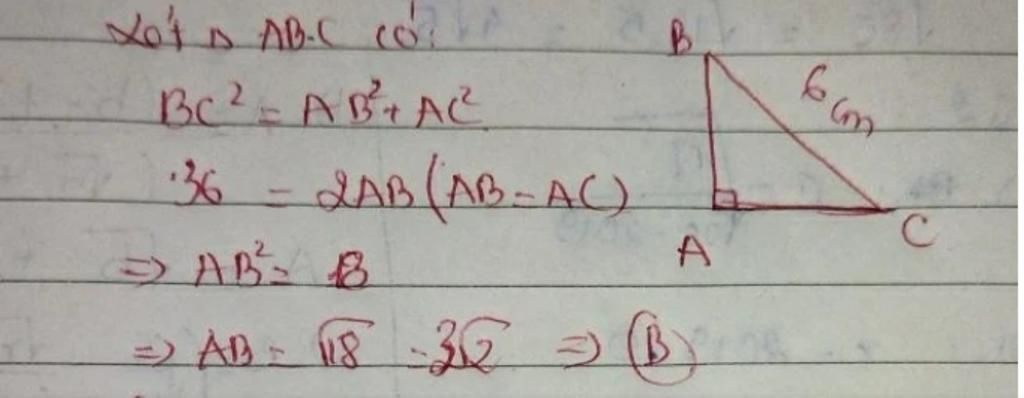 Xét Δ ABC có:
BC² = AB² + AC²
36 = 2AB (AB = AC)
=> AB² = 18
=> AB = √18 = 3√2 => B
B
6 cm
A
C